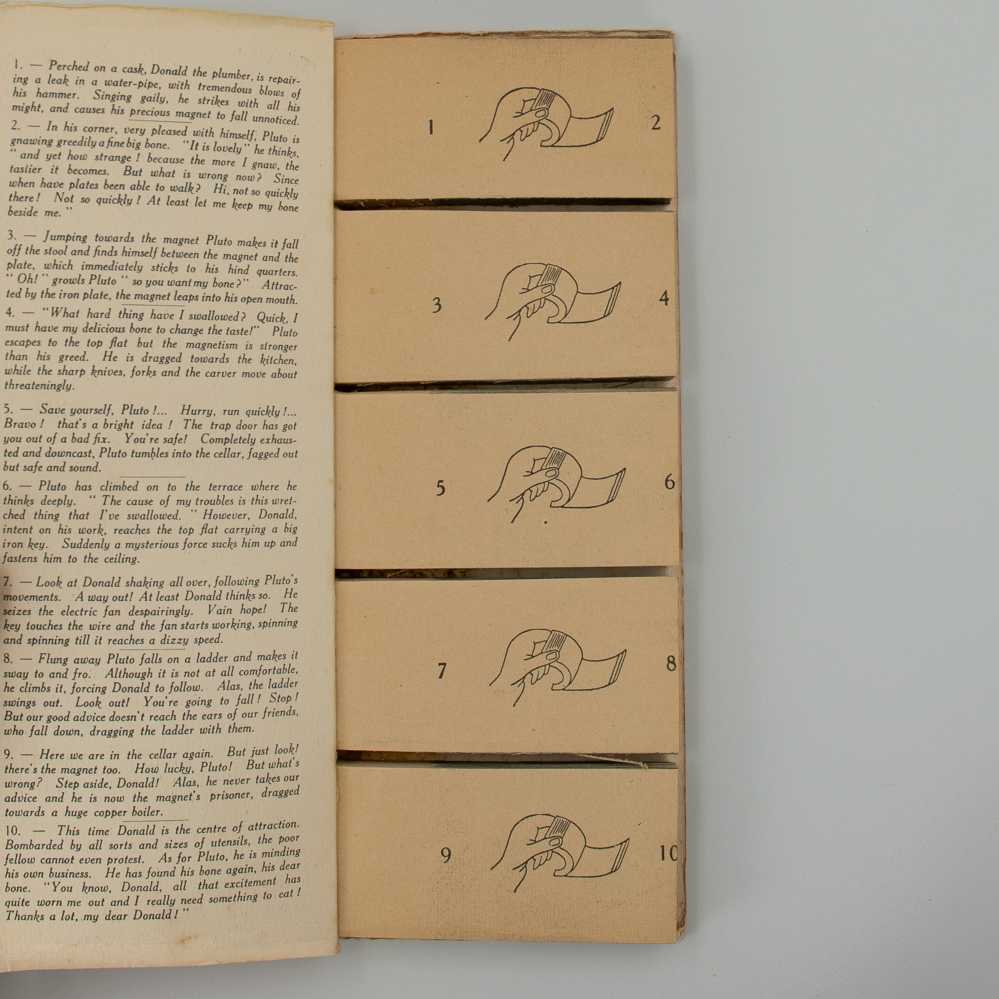 1. — Perched on a cask, Donald the plumber, is repair-
ing a leak in a water-pipe, with tremendous blows of
his hammer. Singing gaily, he strikes with all his
might, and causes his precious magnet to fall unnoticed.
2. — In his corner, very pleased with himself, Pluto is
gnawing greedily a fine big bone. "It is lovely" he thinks,
"and yet how strange! because the more I gnaw, the
tastier it becomes. But what is wrong now? Since
when have plates been able to walk? Hi, not so quickly
there! Not so quickly! At least let me keep my bone
beside me."
3. — Jumping towards the magnet Pluto makes it fall
off the stool and finds himself between the magnet and the
plate, which immediately sticks to his hind quarters.
"Oh!" growls Pluto "so you want my bone?" Attrac-
ted by the iron plate, the magnet leaps into his open mouth.
4. — "What hard thing have I swallowed? Quick, I
must have my delicious bone to change the taste!" Pluto
escapes to the top flat but the magnetism is stronger
than his greed. He is dragged towards the kitchen,
while the sharp knives, forks and the carver move about
threateningly.
5. — Save yourself, Pluto!... Hurry, run quickly!...
Bravo! that's a bright idea! The trap door has got
you out of a bad fix. You're safe! Completely exhaus-
ted and downcast, Pluto tumbles into the cellar, fagged out
but safe and sound.
6. — Pluto has climbed on to the terrace where he
thinks deeply. "The cause of my troubles is this wret-
ched thing that I've swallowed." However, Donald,
intent on his work, reaches the top flat carrying a big
iron key. Suddenly a mysterious force sucks him up and
fastens him to the ceiling.
7. — Look at Donald shaking all over, following Pluto's
movements. A way out! At least Donald thinks so. He
seizes the electric fan despairingly. Vain hope! The
key touches the wire and the fan starts working, spinning
and spinning till it reaches a dizzy speed.
8. — Flung away Pluto falls on a ladder and makes it
sway to and fro. Although it is not at all comfortable,
he climbs it, forcing Donald to follow. Alas, the ladder
swings out. Look out! You're going to fall! Stop!
But our good advice doesn't reach the ears of our friends,
who fall down, dragging the ladder with them.
9. — Here we are in the cellar again. But just look!
there's the magnet too. How lucky, Pluto! But what's
wrong? Step aside, Donald! Alas, he never takes our
advice and he is now the magnet's prisoner, dragged
towards a huge copper boiler.
10. — This time Donald is the centre of attraction.
Bombarded by all sorts and sizes of utensils, the poor
fellow cannot even protest. As for Pluto, he is minding
his own business. He has found his bone again, his dear
bone. "You know, Donald, all that excitement has
quite worn me out and I really need something to eat!
Thanks a lot, my dear Donald!"
1 2
3 4
5 6
7 8
9 10